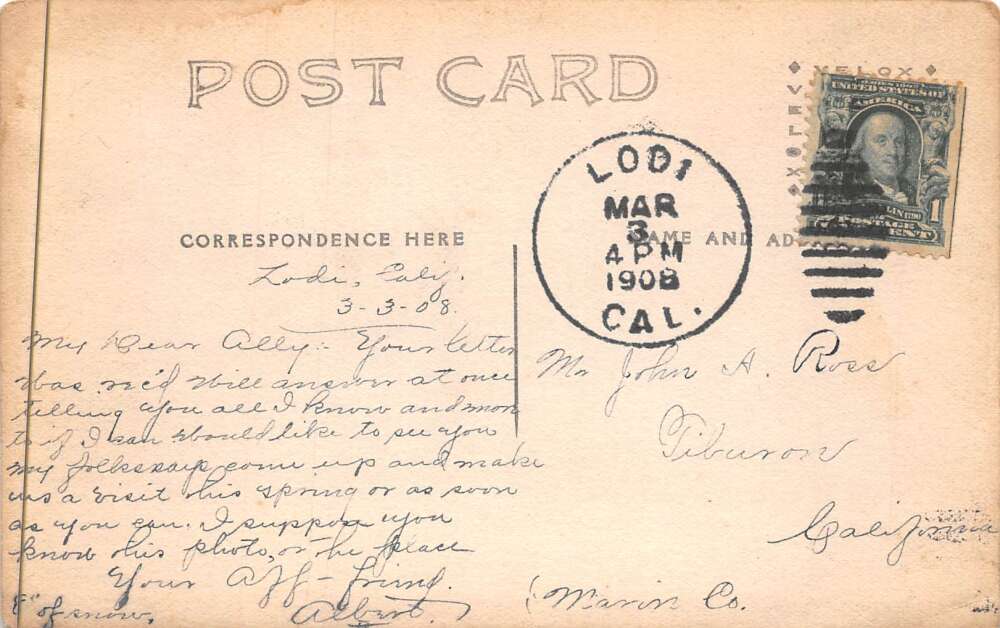 POST CARD
VELOX
VELOX
SERIES 1902
UNITED STATES OF
AMERICA
1
POSTAGE
LODI
MAR
3
4 PM
1908
CAL.
CORRESPONDENCE HERE
NAME AND AD
Lodi, Calif.
3-3-08.
My Dear Ally:- Your letter
was rec'd Will answer at once
telling you all I know and more
to if I can would like to see you
my folks say come up and make
us a visit this spring or as soon
as you can. I suppose you
know this photo, or the place
Your Aff- friend.
Albert.
8" of snow.
Mr John A. Ross
Tiburon
California
Marin Co.